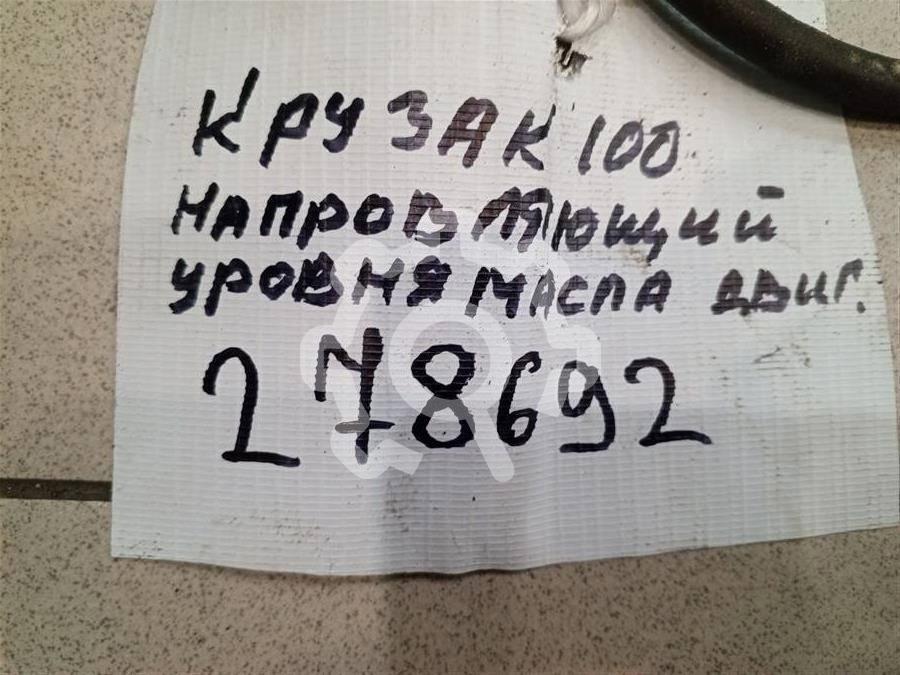 КРУЗАК 100
НАПРОВЛЯЮЩИЙ
УРОВНЯ МАСЛА ДВИГ.
278692